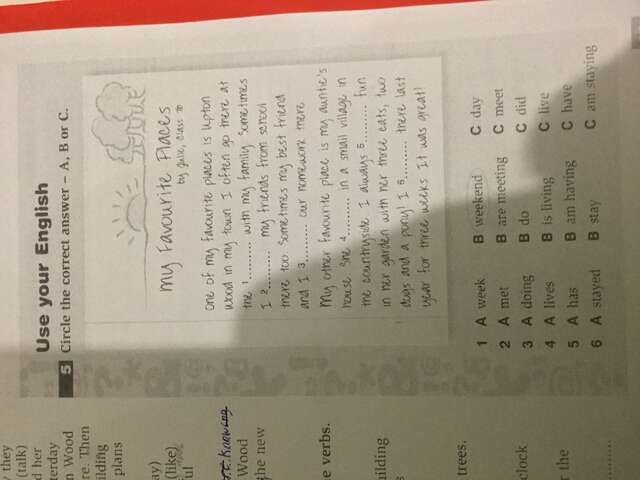 Use your English
5 Circle the correct answer – A, B or C.
My Favourite Places
by Julie, Class 7B
One of my favourite places is Upton
Wood in my town I often go there at
the 1.......... with my family. Sometimes
I 2.......... my friends from school
there too. Sometimes my best friend
and I 3.......... our homework there
My other favourite place is my auntie's
house She 4.......... in a small village in
the countryside I always 5.......... fun
in her garden with her three cats, two
dogs and a pony! I 6.......... there last
year for three weeks It was great!
1 A week B weekend C day
2 A met B are meeting C meet
3 A doing B do C did
4 A lives B is living C live
5 A has B am having C have
6 A stayed B stay C am staying
they
(talk)
her
Wood
Then
plans
(like)
Wood
the new
verbs.
trees.
the